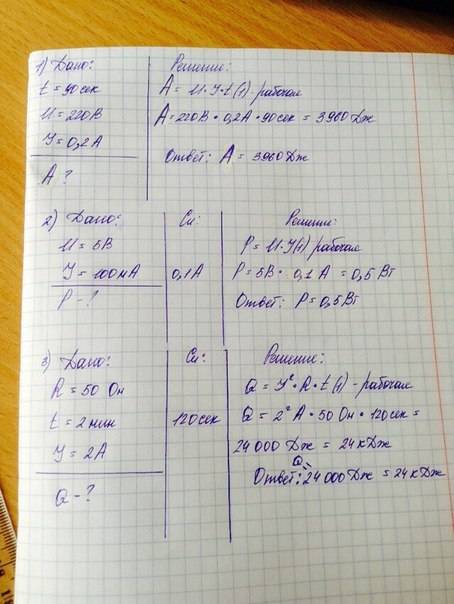 1) Дано:
t = 90сек
U = 220В
I = 0,2А
A ?
Решение:
A = U·I·t (1) - рабочая
A = 220В · 0,2А · 90сек = 3960 Дж
Ответ: A = 3960 Дж
2) Дано:
U = 5В
I = 100мА
P - ?
Си:
0,1А
Решение:
P = U·I(1) рабочая
P = 5В · 0,1 А = 0,5 Вт
Ответ: P = 0,5 Вт
3) Дано:
R = 50 Ом
t = 2 мин
I = 2А
Q - ?
Си:
120сек
Решение:
Q = I² · R · t (1) - рабочая
Q = 2² А · 50 Ом · 120сек =
24 000 Дж = 24кДж
Ответ: Q = 24 000 Дж = 24кДж